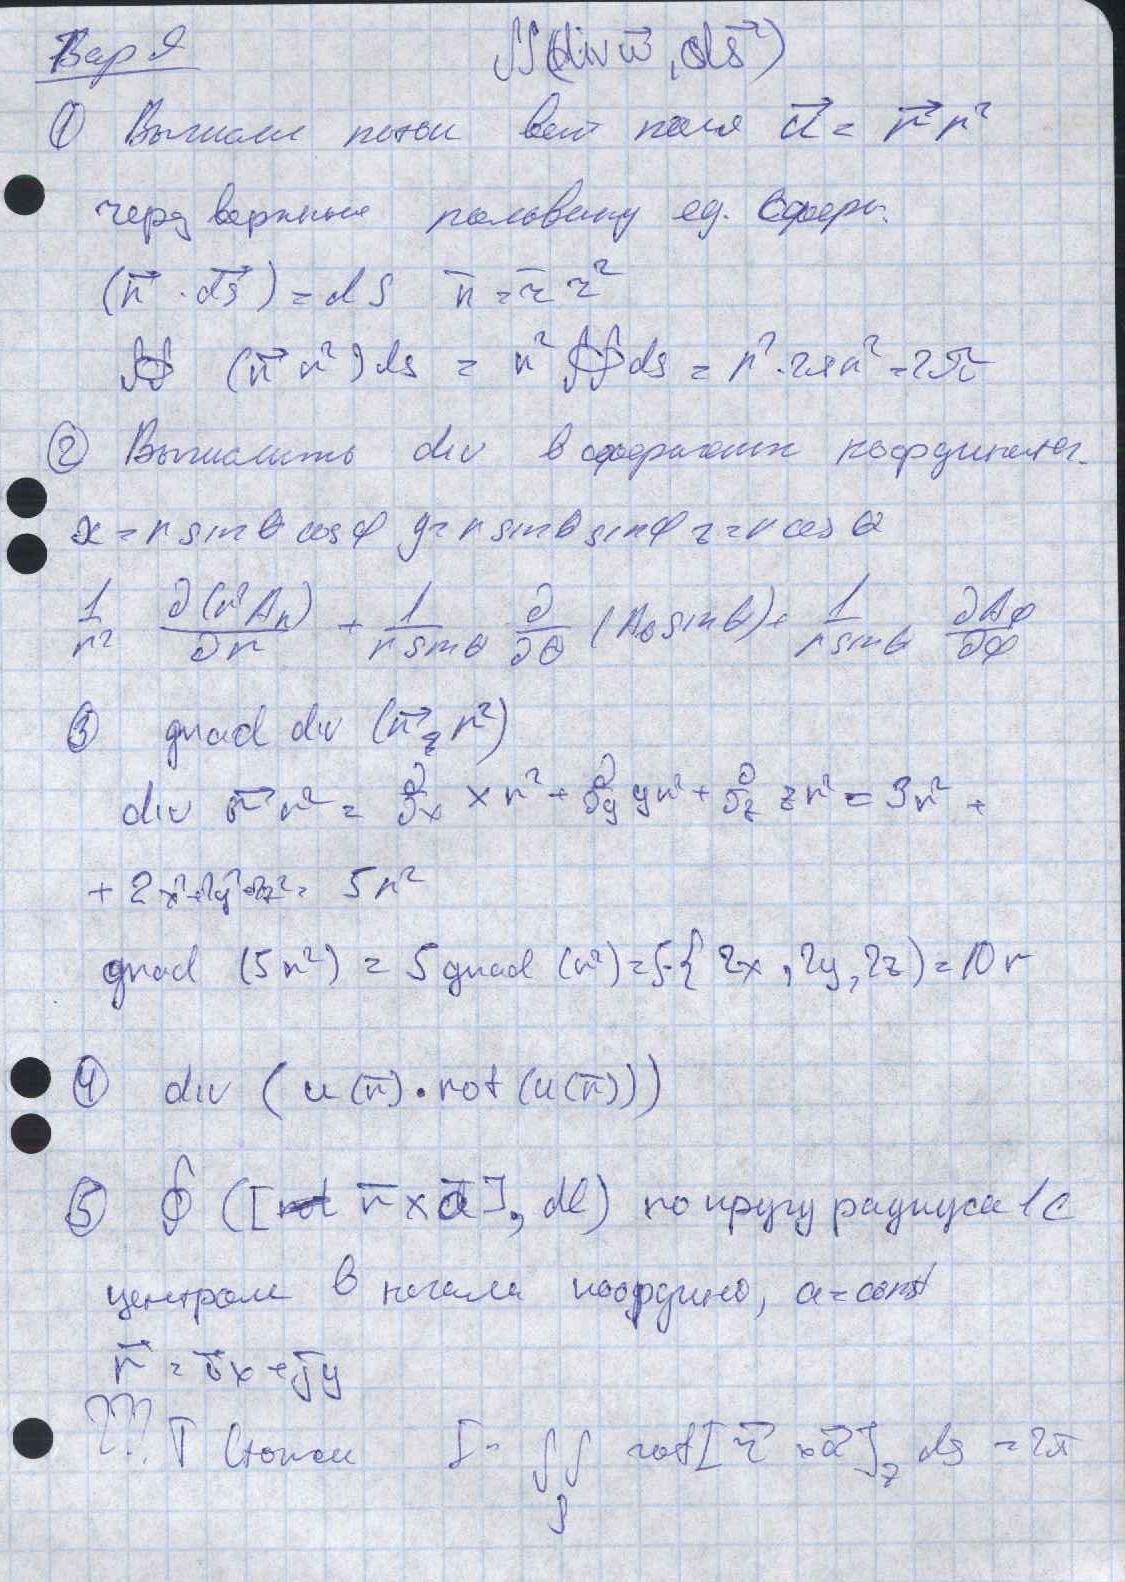 Вар 9 ∬(div u⃗, ds⃗)
① Вычисл поток вект поля a⃗ = r⃗ r²
через верхнюю половину ед. сферы.
(r⃗ · ds⃗) = dS n̄ = r̄ r²
∯ (r⃗ r²) ds = r² ∯ ds = r² · 2πr² = 2π
② Вычислить div в сферических координатах.
x = r sinθ cosφ y = r sinθ sinφ z = r cosθ
1/r² ∂(r²A_r)/∂r + 1/(r sinθ) ∂/∂θ (A_θ sinθ) + 1/(r sinθ) ∂A_φ/∂φ
③ grad div (r⃗ r²)
div r⃗ r² = ∂/∂x x r² + ∂/∂y y r² + ∂/∂z z r² = 3r² +
+ 2x² + 2y² + 2z² = 5r²
grad (5r²) = 5 grad (r²) = 5·{2x, 2y, 2z) = 10r
④ div (u(r̄) · rot (u(r̄)))
⑤ ∮ ([r̄ × a⃗], dl) по кругу радиуса 1 с
центром в начала координ, a = const
r⃗ = i⃗x + j⃗y
??? Т Стокса I = ∬ rot[r⃗ × a⃗]_z ds = 2π
S